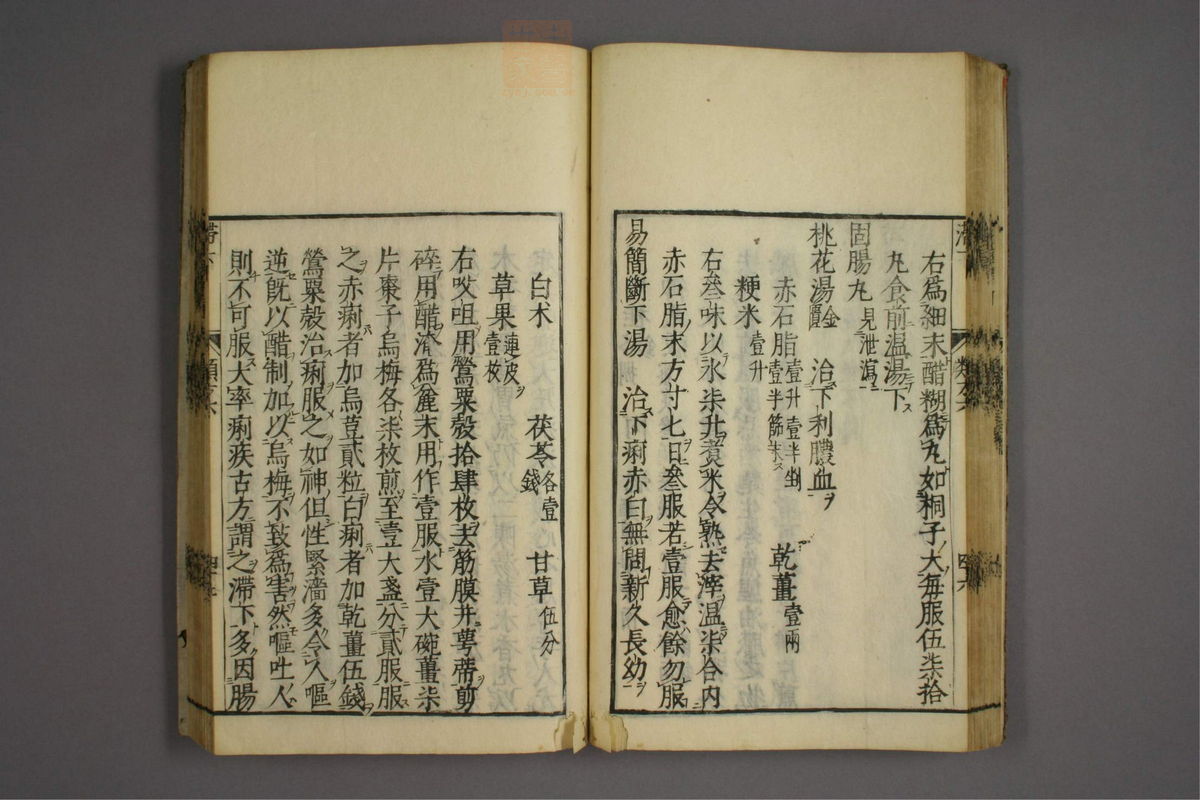 右為細末醋糊為丸如桐子大每服伍柒拾
丸食前温湯下
固腸丸 見泄瀉
桃花湯 金匱 治下利膿血
赤石脂 壹升壹半剉 壹半篩末 乾薑 壹兩
粳米 壹升
右叁味以水柒升煑米令熟去滓温柒合内
赤石脂末方寸七日叁服若壹服愈餘勿服
易簡斷下湯 治下痢赤白無問新久長幼
白术 茯苓 各壹錢 甘草 伍分
草果 連皮壹枚
右㕮咀用鶯粟殼拾肆枚去筋膜并萼蒂剪
碎用醋淹為麄末用作壹服水壹大碗薑柒
片棗子烏梅各柒枚煎至壹大盞分貳服服
之赤痢者加烏荳貳粒白痢者加乾薑伍錢
鶯粟殼治痢服之如神但性緊濇多令人嘔
逆旣以醋制加以烏梅不致為害然嘔吐人
則不可服大率痢疾古方謂之滯下多因腸